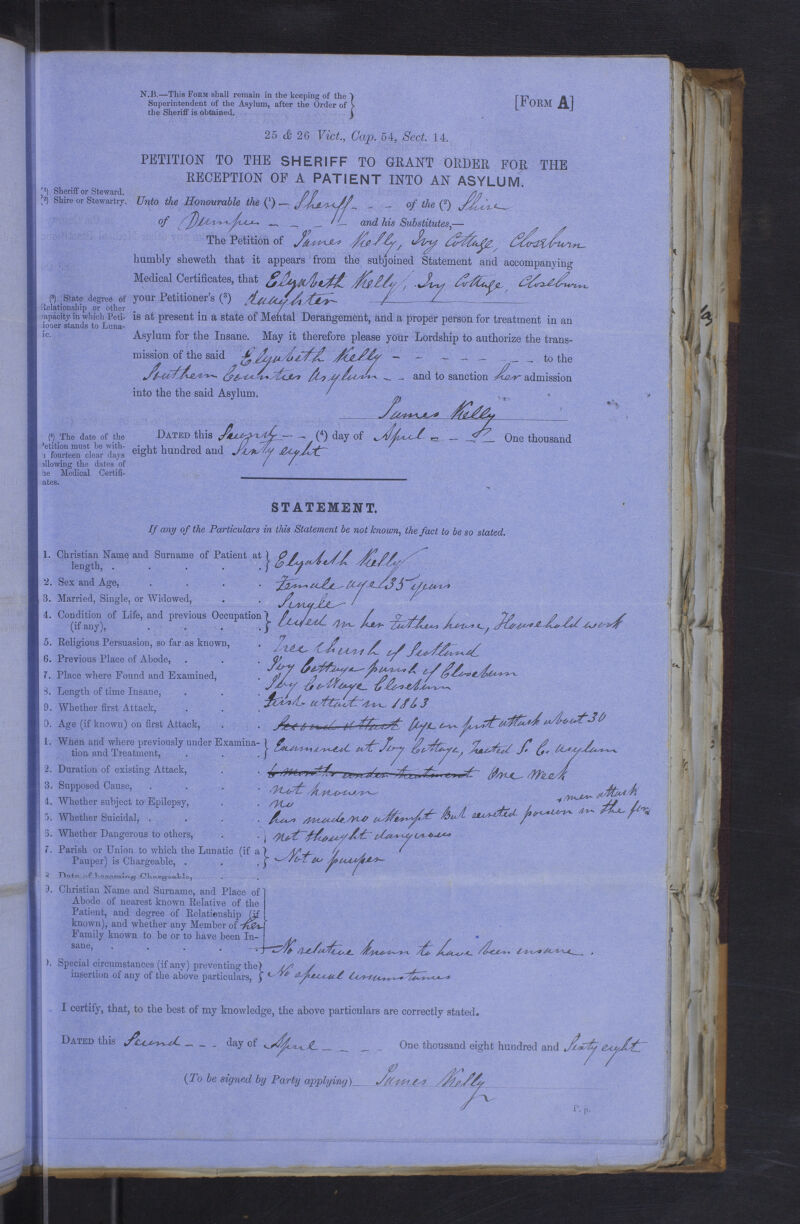 N.B.—This Form shall remain in the keeping of the
Superintendent of the Asylum, after the Order of
the Sheriff is obtained.
[Form A]
25 & 26 Vict., Cap. 54, Sect. 14.
PETITION TO THE SHERIFF TO GRANT ORDER FOR THE
RECEPTION OF A PATIENT INTO AN ASYLUM.
(1) Sheriff or Steward.
(2) Shire or Stewartry.
Unto the Honourable the (1) — Sheriff - - - of the (2) Shire
of Dumfries — — — and his Substitutes,—
The Petition of James Kelly, Ivy Cottage, Closeburn
humbly sheweth that it appears from the subjoined Statement and accompanying
Medical Certificates, that Elyabeth Kelly, Ivy Cottage, Closeburn
(3) State degree of
Relationship or other
capacity in which Peti-
ioner stands to Luna-
ic.
your Petitioner's (3) daughter
is at present in a state of Mental Derangement, and a proper person for treatment in an
Asylum for the Insane. May it therefore please your Lordship to authorize the trans-
mission of the said Elyabeth Kelly - - - - - - to the
Southern Counties Asylum - - and to sanction her admission
into the the said Asylum.
James Kelly
(4) The date of the
Petition must be with-
n fourteen clear days
ollowing the dates of
he Medical Certifi-
ates.
Dated this Second — - (4) day of April - - - One thousand
eight hundred and Sixty eight
STATEMENT.
If any of the Particulars in this Statement be not known, the fact to be so stated.
1. Christian Name and Surname of Patient at length, . Elyabeth Kelly
2. Sex and Age, Female age 35 years
3. Married, Single, or Widowed, Single
4. Condition of Life, and previous Occupation (if any), lived in her Fathers house, Household work
5. Religious Persuasion, so far as known, Free Church of Scotland
6. Previous Place of Abode, Ivy Cottage parish of Closeburn
7. Place where Found and Examined, Ivy Cottage Closeburn
8. Length of time Insane,
First attact in 1863
9. Whether first Attack,
0. Age (if known) on first Attack, Second attack Age on first attack about 30
1. When and where previously under Examina-tion and Treatment, Examined at Ivy Cottage, Treated S. C. Asylum
2. Duration of existing Attack, 6 months under treatment One Week
3. Supposed Cause, not known
4. Whether subject to Epilepsy, no
5. Whether Suicidal, has made no attempt But secreted poison in the former attack
6. Whether Dangerous to others, not thought dangerous
7. Parish or Union to which the Lunatic (if a Pauper) is Chargeable, Not a pauper
8. Date of becoming Chargeable,
9. Christian Name and Surname, and Place of
Abode of nearest known Relative of the
Patient, and degree of Relationship (if
known), and whether any Member of her
Family known to be or to have been In-
sane, No relative known to have been insane.
). Special circumstances (if any) preventing the
insertion of any of the above particulars, No special circumstances
I certify, that, to the best of my knowledge, the above particulars are correctly stated.
Dated this Second - - - day of April - - - One thousand eight hundred and Sixty eight
(To be signed by Party applying) James Kelly